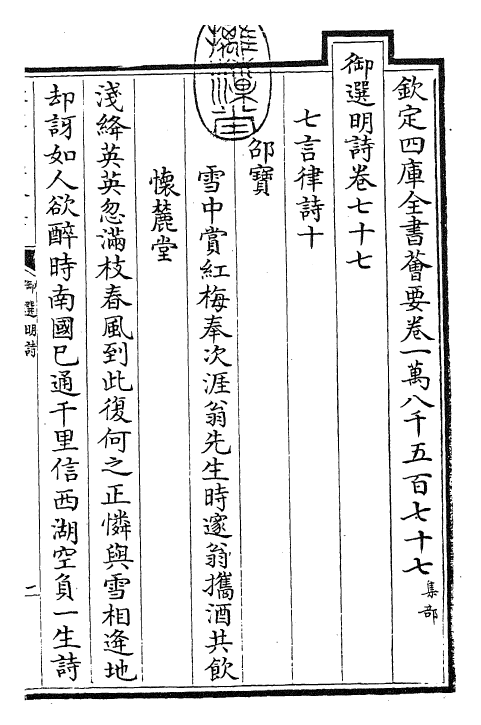 欽定四庫全書薈要卷一萬八千五百七十七 集部
御選明詩卷七十七
七言律詩十
邵寶
雪中賞紅梅奉次涯翁先生時邃翁攜酒共飲
懷麓堂
淺絳英英忽滿枝春風到此復何之正憐與雪相逄地
却訝如人欲醉時南國已通千里信西湖空負一生詩
御選明詩
二